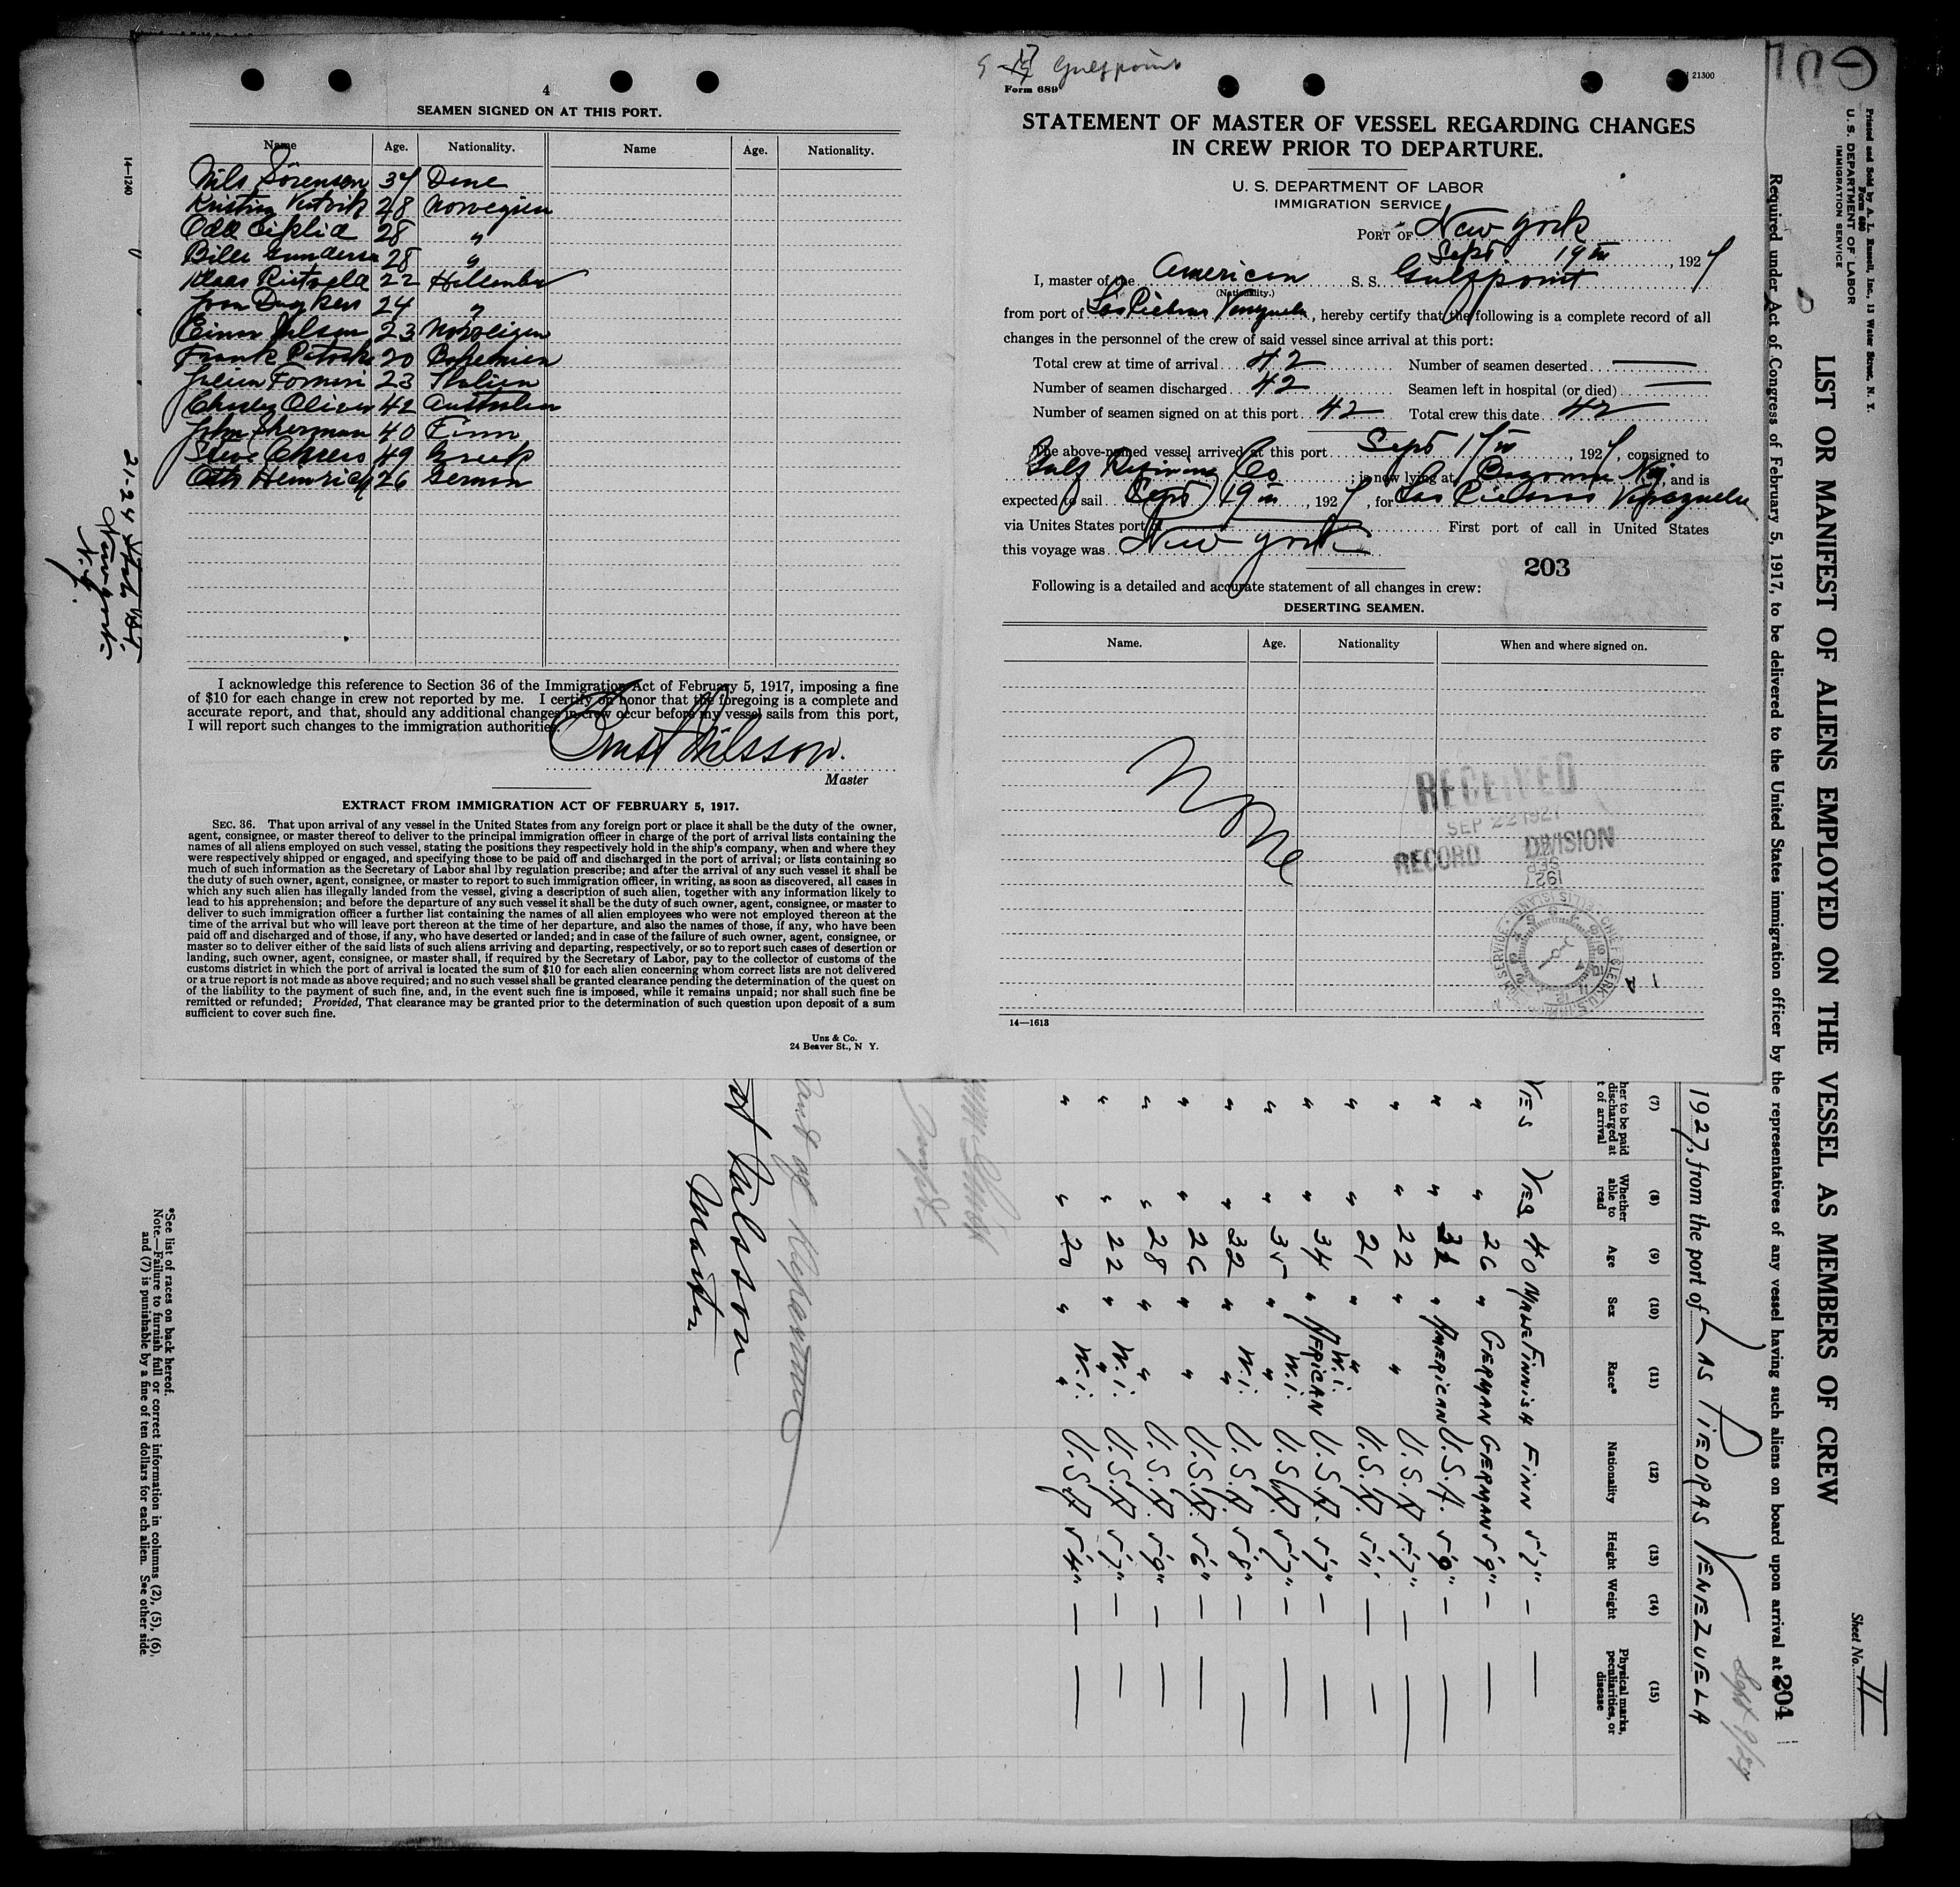 4
SEAMEN SIGNED ON AT THIS PORT.
Name Age. Nationality. Name Age. Nationality.
Nils Sörensen 34 Dane
28 Norwegian
Odd 28 "
28 "
Klaas 22
24 "
Einar Nilsen 23
Frank 20
23 Italien
Charley Oliver 42 Australien
John Sherman 40 Finn
Steve 49 Greek
Otto Heinrich 26 German
I acknowledge this reference to Section 36 of the Immigration Act of February 5, 1917, imposing a fine
of $10 for each change in crew not reported by me. I certify on honor that the foregoing is a complete and
accurate report, and that, should any additional changes in crew occur before my vessel sails from this port,
I will report such changes to the immigration authorities.
Ernst Nilsson.
Master
EXTRACT FROM IMMIGRATION ACT OF FEBRUARY 5, 1917.
SEC. 36. That upon arrival of any vessel in the United States from any foreign port or place it shall be the duty of the owner,
agent, consignee, or master thereof to deliver to the principal immigration officer in charge of the port of arrival lists containing the
names of all aliens employed on such vessel, stating the positions they respectively hold in the ship's company, when and where they
were respectively shipped or engaged, and specifying those to be paid off and discharged in the port of arrival; or lists containing so
much of such information as the Secretary of Labor shal lby regulation prescribe; and after the arrival of any such vessel it shall be
the duty of such owner, agent, consignee, or master to report to such immigration officer, in writing, as soon as discovered, all cases in
which any such alien has illegally landed from the vessel, giving a description of such alien, together with any information likely to
lead to his apprehension; and before the departure of any such vessel it shall be the duty of such owner, agent, consignee, or master to
deliver to such immigration officer a further list containing the names of all alien employees who were not employed thereon at the
time of the arrival but who will leave port thereon at the time of her departure, and also the names of those, if any, who have been
paid off and discharged and of those, if any, who have deserted or landed; and in case of the failure of such owner, agent, consignee, or
master so to deliver either of the said lists of such aliens arriving and departing, respectively, or so to report such cases of desertion or
landing, such owner, agent, consignee, or master shall, if required by the Secretary of Labor, pay to the collector of customs of the
customs district in which the port of arrival is located the sum of $10 for each alien concerning whom correct lists are not delivered
or a true report is not made as above required; and no such vessel shall be granted clearance pending the determination of the quest on
of the liability to the payment of such fine, and, in the event such fine is imposed, while it remains unpaid; nor shall such fine be
remitted or refunded; Provided, That clearance may be granted prior to the determination of such question upon deposit of a sum
sufficient to cover such fine.
Unz & Co.
24 Beaver St., N Y.
Gulfpoint
Form 689
21300
STATEMENT OF MASTER OF VESSEL REGARDING CHANGES
IN CREW PRIOR TO DEPARTURE.
U. S. DEPARTMENT OF LABOR
IMMIGRATION SERVICE
PORT OF New York
Sept. 19th, 1927
I, master of the American S. S. Gulfpoint
(Nationality.)
from port of Las Piedras Venezuela, hereby certify that the following is a complete record of all
changes in the personnel of the crew of said vessel since arrival at this port:
Total crew at time of arrival 42 Number of seamen deserted —
Number of seamen discharged 42 Seamen left in hospital (or died) —
Number of seamen signed on at this port 42 Total crew this date 42
The above-named vessel arrived at this port Sept 17th, 1927, consigned to
Gulf Refining Co; is now lying at Bayonne N.J., and is
expected to sail Sept 19th, 1927, for Las Piedras Venezuela
via Unites States port of First port of call in United States
this voyage was New York
203
Following is a detailed and accurate statement of all changes in crew:
DESERTING SEAMEN.
Name. Age. Nationality When and where signed on.
None
RECEIVED
SEP 22 1927
RECORD DIVISION
14—1613
14—1240
Printed and Sold by A. L. Russell, Inc., 13 Water Street, N. Y.
Form 680
U. S. DEPARTMENT OF LABOR
IMMIGRATION SERVICE
Sheet No. 11
LIST OR MANIFEST OF ALIENS EMPLOYED ON THE VESSEL AS MEMBERS OF CREW
Required under Act of Congress of February 5, 1917, to be delivered to the United States immigration officer by the representatives of any vessel having such aliens on board upon arrival at
204
1927, from the port of LAS PIEDRAS VENEZUELA
(7) (8) (9) (10) (11) (12) (13) (14) (15)
her to be paid discharged at t of arrival Whether able to read Age Sex Race* Nationality Height Weight Physical marks, peculiarities, or disease
YES YES 40 MALE FINNISH FINN 5'7" — —
" " 26 " GERMAN GERMAN 5'9" — —
" " 32 " AMERICAN U.S.A. 5'9" — —
" " 22 " " U.S.A. 5'7" — —
" " 21 " " U.S.A. 5'11" — —
" " 34 " AFRICAN W.I. U.S.A. 5'7" — —
" " 35 " " W.I. U.S.A. 5'7" — —
" " 32 " " W.I. U.S.A. 5'8" — —
" " 26 " " U.S.A. 5'6" — —
" " 28 " " U.S.A. 5'9" — —
" " 22 " " W.I. U.S.A. 5'7" — —
" " 20 " " W.I. U.S.A. 5'4" — —
Nilsson
Master
*See list of races on back hereof.
Note.—Failure to furnish full or correct information in columns (2), (5), (6),
and (7) is punishable by a fine of ten dollars for each alien. See other side